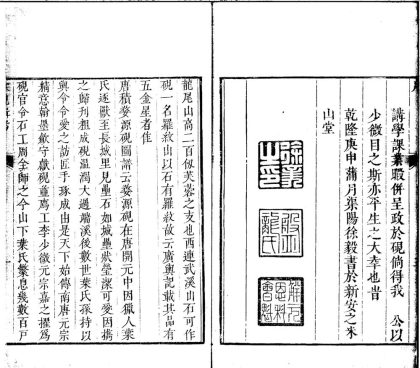 講學課業暇併呈政於硯倘得我　公以
少微目之斯亦平生之大幸也旹
乾隆庚申蒲月渠陽徐毅書於新安之來
山堂
徐毅
之印
龍氏
龍尾山高二百仞似芙蓉之支也西連武溪山石可作
硯一名羅紋山以石有羅紋故云廣輿記載其品有
五金星者佳
唐積婺源硯圖云婺源硯在唐開元中因獵人葉
氏逐獸至長城里見壘石如城壘狀瑩潔可愛因攜
之歸刊粗成硯溫潤大過端溪後數世葉氏孫持以
與令令愛之訪匠手琢成由是天下始傳南唐元宗
精意翰墨歙守獻硯並薦工李少微元宗嘉之擢為
硯官令石工周全師之今山下葉氏繁息幾數百戶